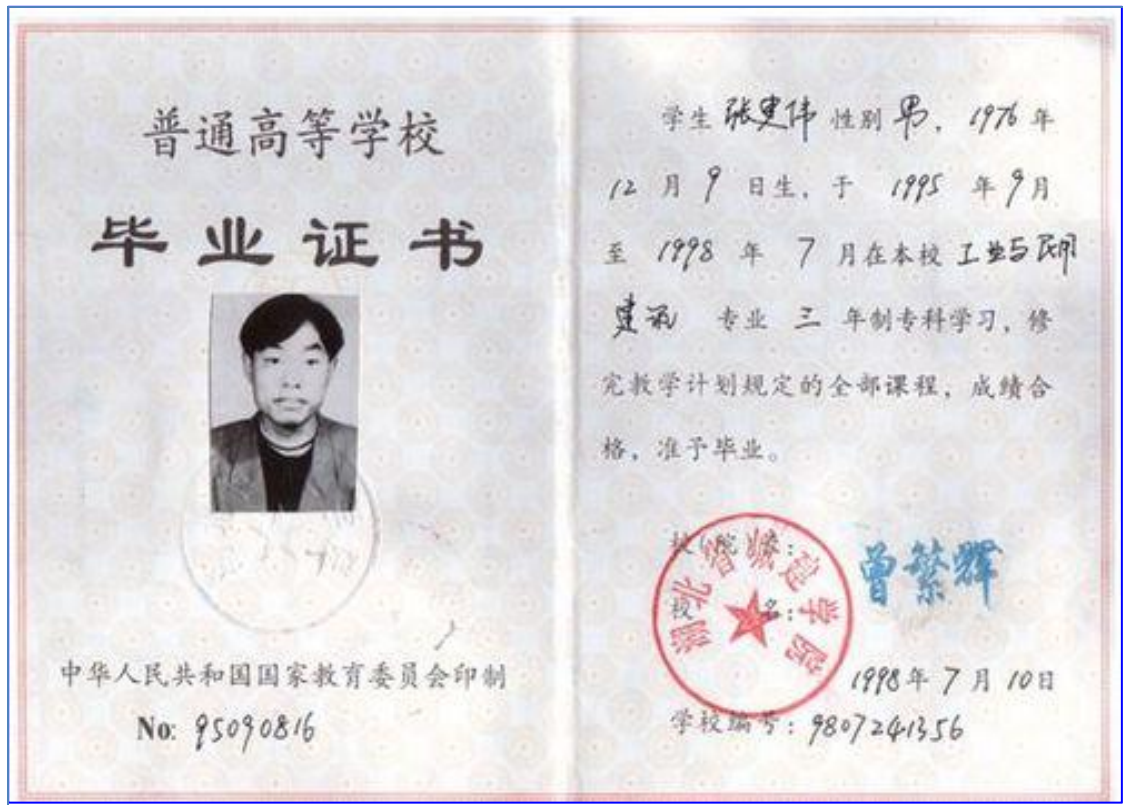 普通高等学校
毕业证书
中华人民共和国国家教育委员会印制
No: 95090816
学生 张建伟 性别 男, 1976 年
12 月 9 日生, 于 1995 年 9 月
至 1998 年 7 月在本校 工业与民用
建筑 专业 三 年制专科学习, 修
完教学计划规定的全部课程, 成绩合
格, 准予毕业。
校(院)长: 曾繁辉
校名:
湖北省城建学院
1998年 7 月 10日
学校编号: 9807241356